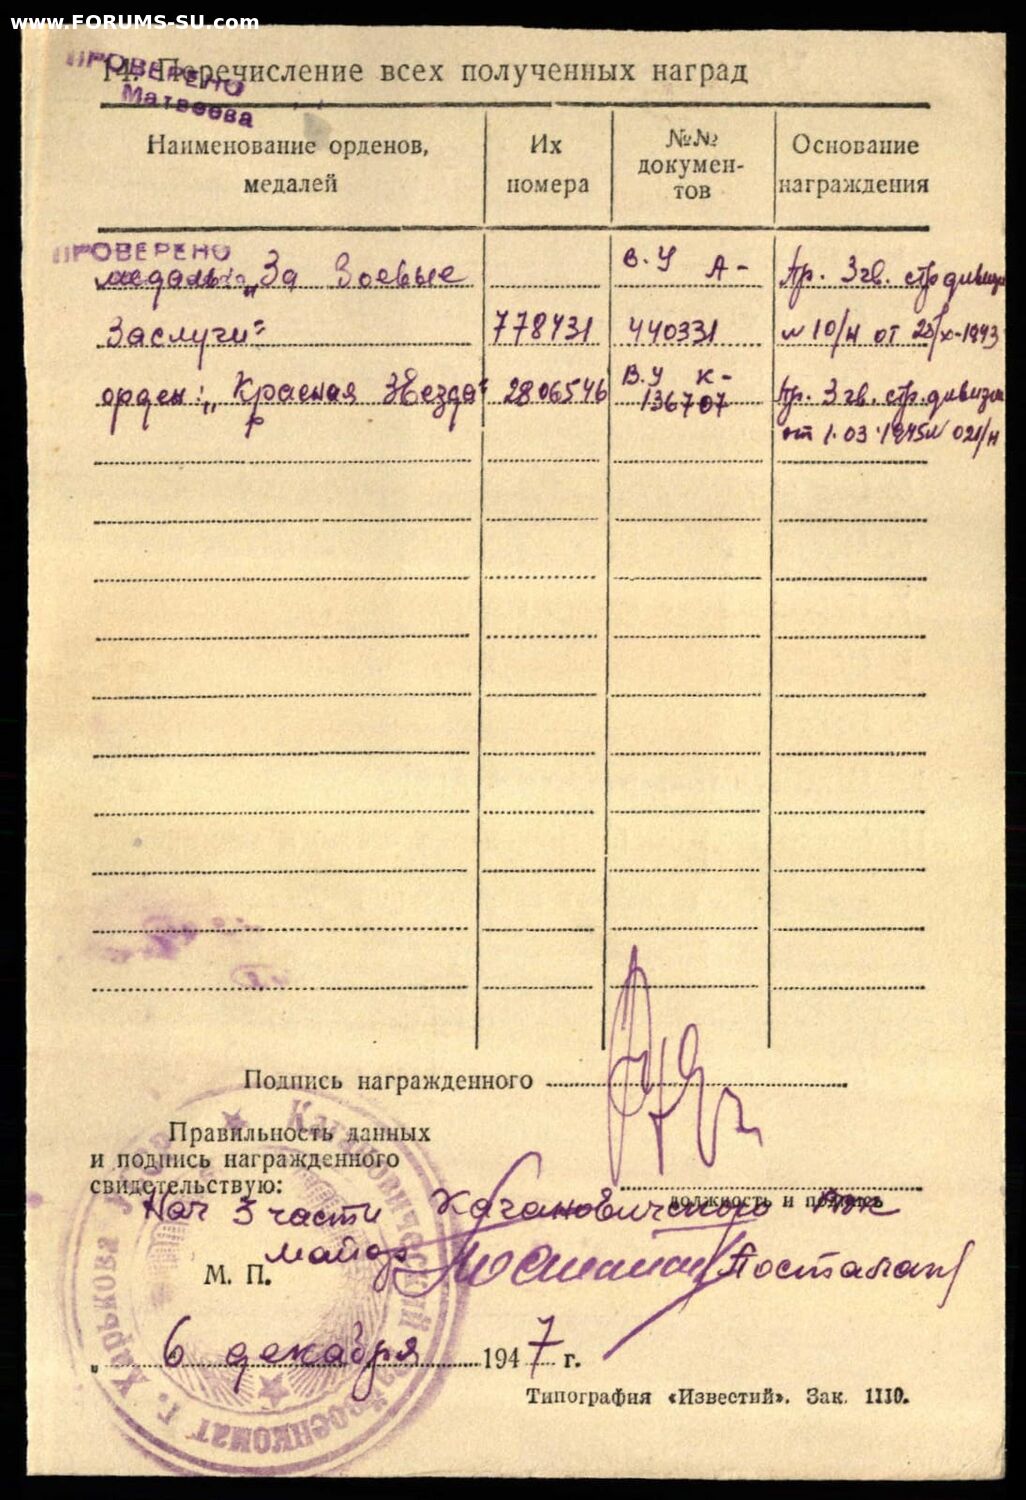 www.FORUMS-SU.com
ПРОВЕРЕНО
Матвеева
14. Перечисление всех полученных наград
Наименование орденов, медалей
Их номера
№№ докумен-тов
Основание награждения
ПРОВЕРЕНО
медаль „За Боевые
В.У А-
Пр. 3 гв. стр дивизи
Заслуги"
778431
440331
№ 10/н от 25/X-1943
орден: „Красная Звезда"
2806546
В.У К-
136707
Пр. 3 гв. стр. дивизии
от 1.03.1945 № 021/н
Подпись награжденного
Правильность данных
и подпись награжденного
свидетельствую:
должность и подпись
Нач 3 части Кагановичского РВК
майор Посталат
М. П.
„ 6 декабря 1947 г.
Типография «Известий». Зак. 1110.
Кагановичский Райвоенкомат г. Харькова